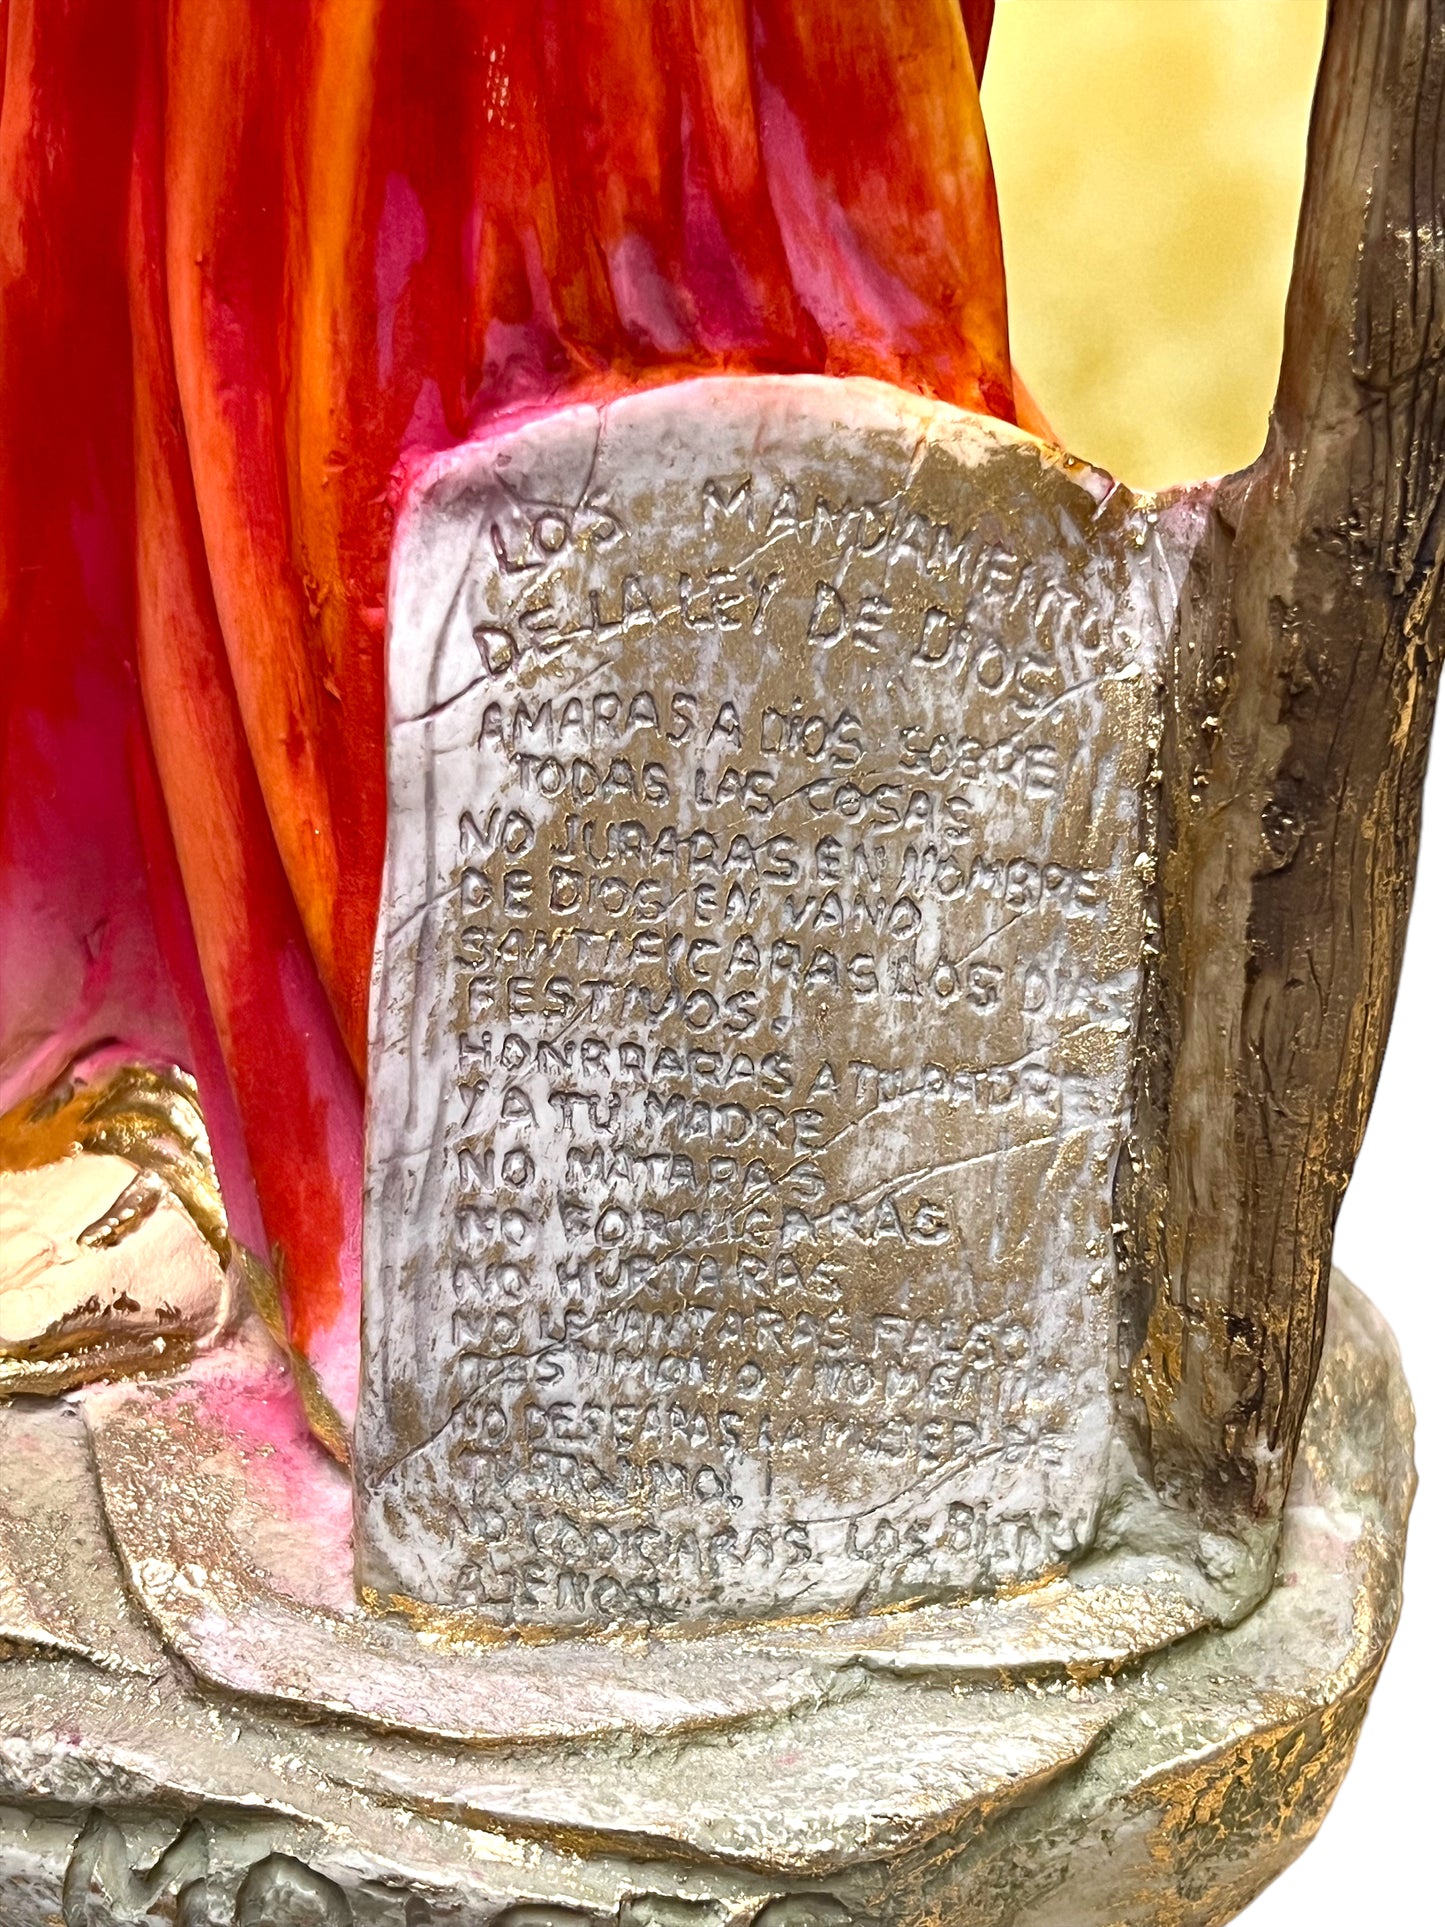 LOS MANDAMIENTOS
DE LA LEY DE DIOS.
AMARAS A DIOS SOBRE
TODAS LAS COSAS
NO JURARAS EN NOMBRE
DE DIOS EN VANO
SANTIFICARAS LOS DIAS
FESTIVOS.
HONRRARAS A TU PADRE
Y A TU MADRE
NO MATARAS
NO FORNICARAS
NO HURTARAS
NO LEVANTARAS FALSO
TESTIMONIO Y NO MENTIR
NO DESEARAS LA MUJER DE
TU PROJIMO.
NO CODICARAS LOS BIENES
AJENOS.